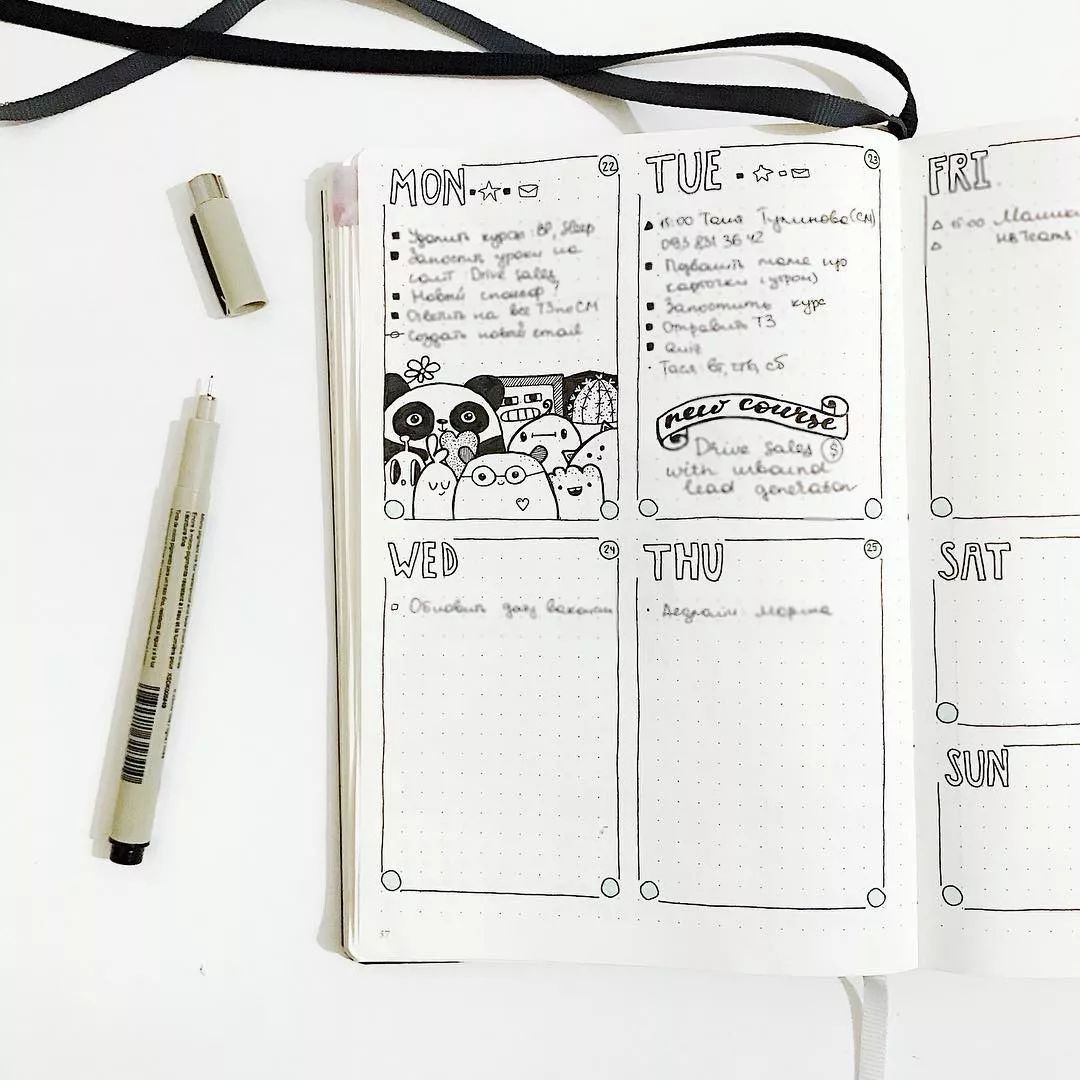 MON
22
Удалить курсы: BP, Sleep
Запостить уроки на
сайт Drive sales,
Новый спонсор?
Ответить на все ТЗ по СМ
Создать новый email
TUE
23
15:00 Таня (СМ)
093 831 36 42
маме про
карточки (утром)
Запостить курс
Отправить ТЗ
Quiz
Тася вт, чтв, сб
new course
Drive sales $
with inbound
lead generation
WED
24
Обновить дату вакансии
THU
25
Дедлайн Марина
FRI
15:00
SAT
SUN
37